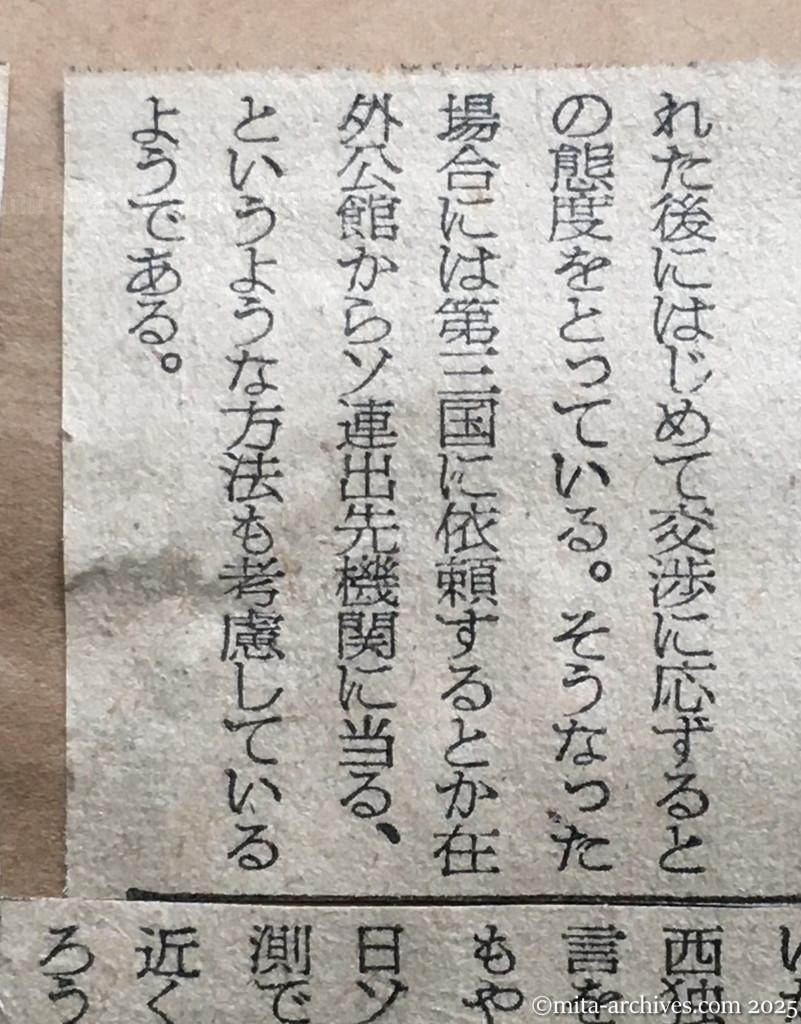 れた後にはじめて交渉に応ずると
の態度をとっている。そうなった
場合には第三国に依頼するとか在
外公館からソ連出先機関に当る、
というような方法も考慮している
ようである。
西独
言を
もや
日ソ
測で
近く
ろう
©mita-archives.com 2025